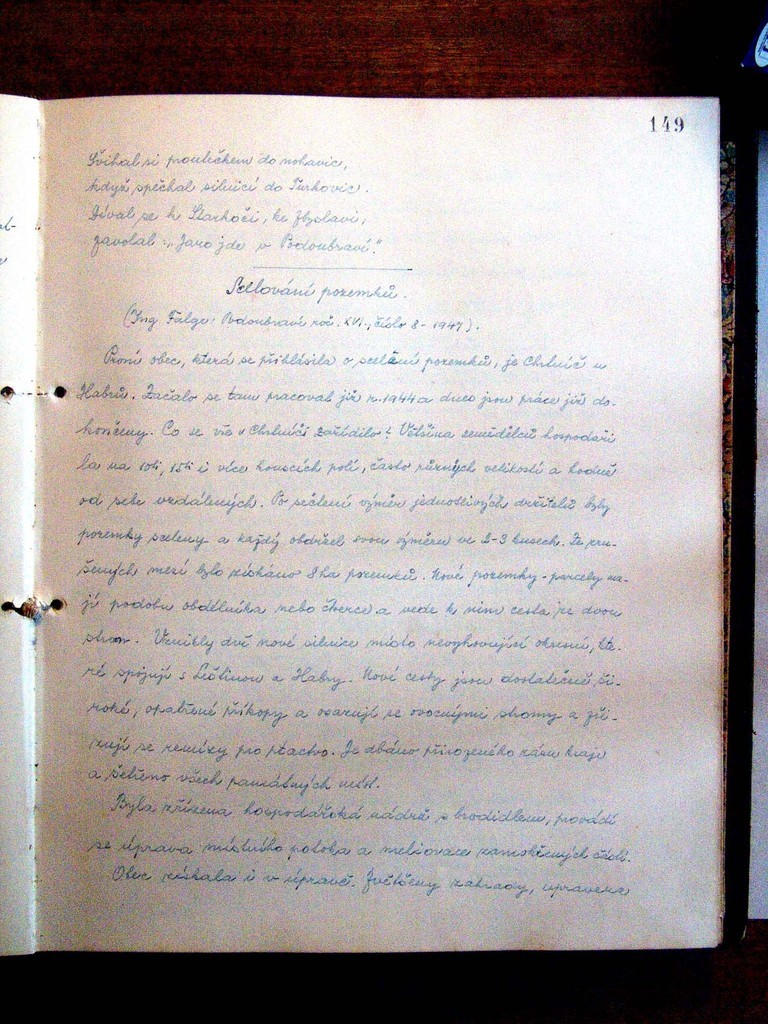 149
Švihal si proutečkem do nohavic,
když spěchal silnicí do Turkovic.
Díval se k Starkoči, ke Zbyslavi,
zavolal: „Jaro jde v Podoubraví."
Scelování pozemků.
(Ing. Falge: Podoubraví roč. XVI., číslo 8 - 1947).
První obec, která se přihlásila o scelení pozemků, je Chrtníč u
Habrů. Začalo se tam pracovat již r. 1944 a dnes jsou práce již do-
končeny. Co se vše v Chrtníči zařídilo? Většina zemědělců hospodaři
la na 10ti, 15ti i více kouscích polí, často různých velikostí a hodně
od sebe vzdálených. Po sečtení výměr jednotlivých držitelů byly
pozemky sceleny a každý obdržel svou výměru ve 2-3 kusech. Ze zru-
šených mezí bylo získáno 8 ha pozemků. Nové pozemky - parcely ma-
jí podobu obdélníka nebo čtverce a vede k nim cesta ze dvou
stran. Vznikly dvě nové silnice místo nevyhovující okresní, kte-
ré spojují s Leštinou a Habry. Nové cesty jsou dostatečně ši-
roké, opatřené příkopy a osazují se ovocnými stromy a zři-
zují se remízy pro ptactvo. Je dbáno přirozeného rázu kraje
a šetřeno všech památných míst.
Byla zřízena hospodářská nádrž s brodidlem, provádí
se úprava místního potoka a meliorace zamokřených částí.
Obec získala i v úpravě. Zvětšeny zahrady, upravena